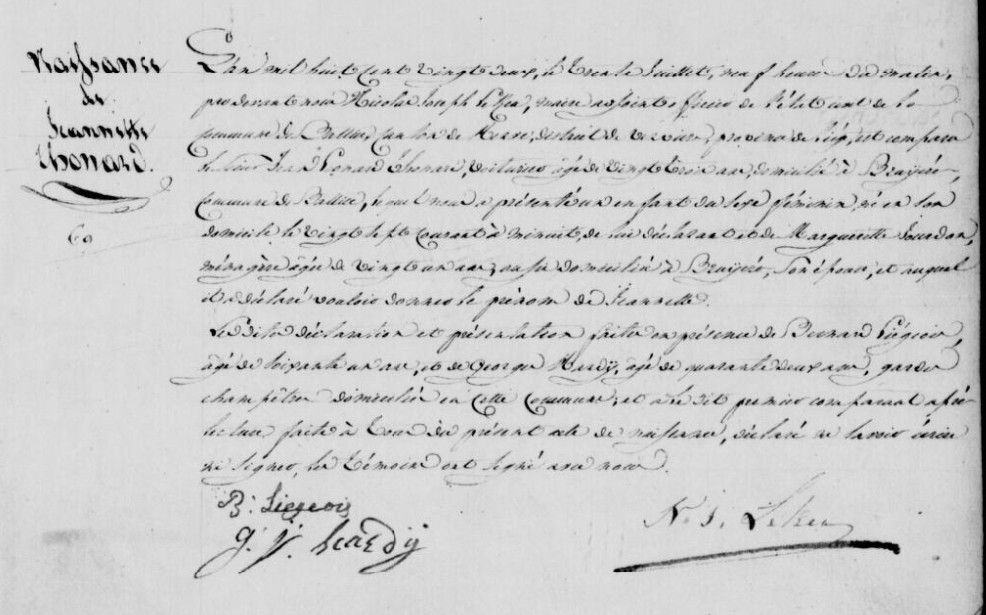 Naissance
de
Jeannette
Thonard.
60
L'an mil huit cent vingt deux, le trente Juillet, neuf heures du matin,
pardevant nous Nicolas Joseph maire officier de l'état civil de la
commune de Battice, canton de Herve, district de Verviers, province de Liége, est comparu
le sieur Jean Léonard Thonard, voiturier âgé de vingt trois ans, domicilié à Bruyère,
commune de Battice, lequel nous a présenté un enfant du sexe féminin, né en son
domicile le vingt sept courant à minuit, de lui déclarant et de Marguerite Dourdon,
ménagère âgée de vingt un ans, aussi domiciliée à Bruyère, son épouse, et auquel
il a déclaré vouloir donner le prénom de Jeannette.
Les dites déclaration et présentation faites en présence de Bernard Liégeois,
âgé de soixante un ans, et de George Hardy, âgé de quarante deux ans, garde
champêtre domiciliés en cette commune, et a le dit premier comparant après
lecture faite à tous du présent acte de naissance, déclaré ne savoir écrire
ni signer, les témoins ont signé avec nous.
B: Liegeois
g. J. hardy
N. J.